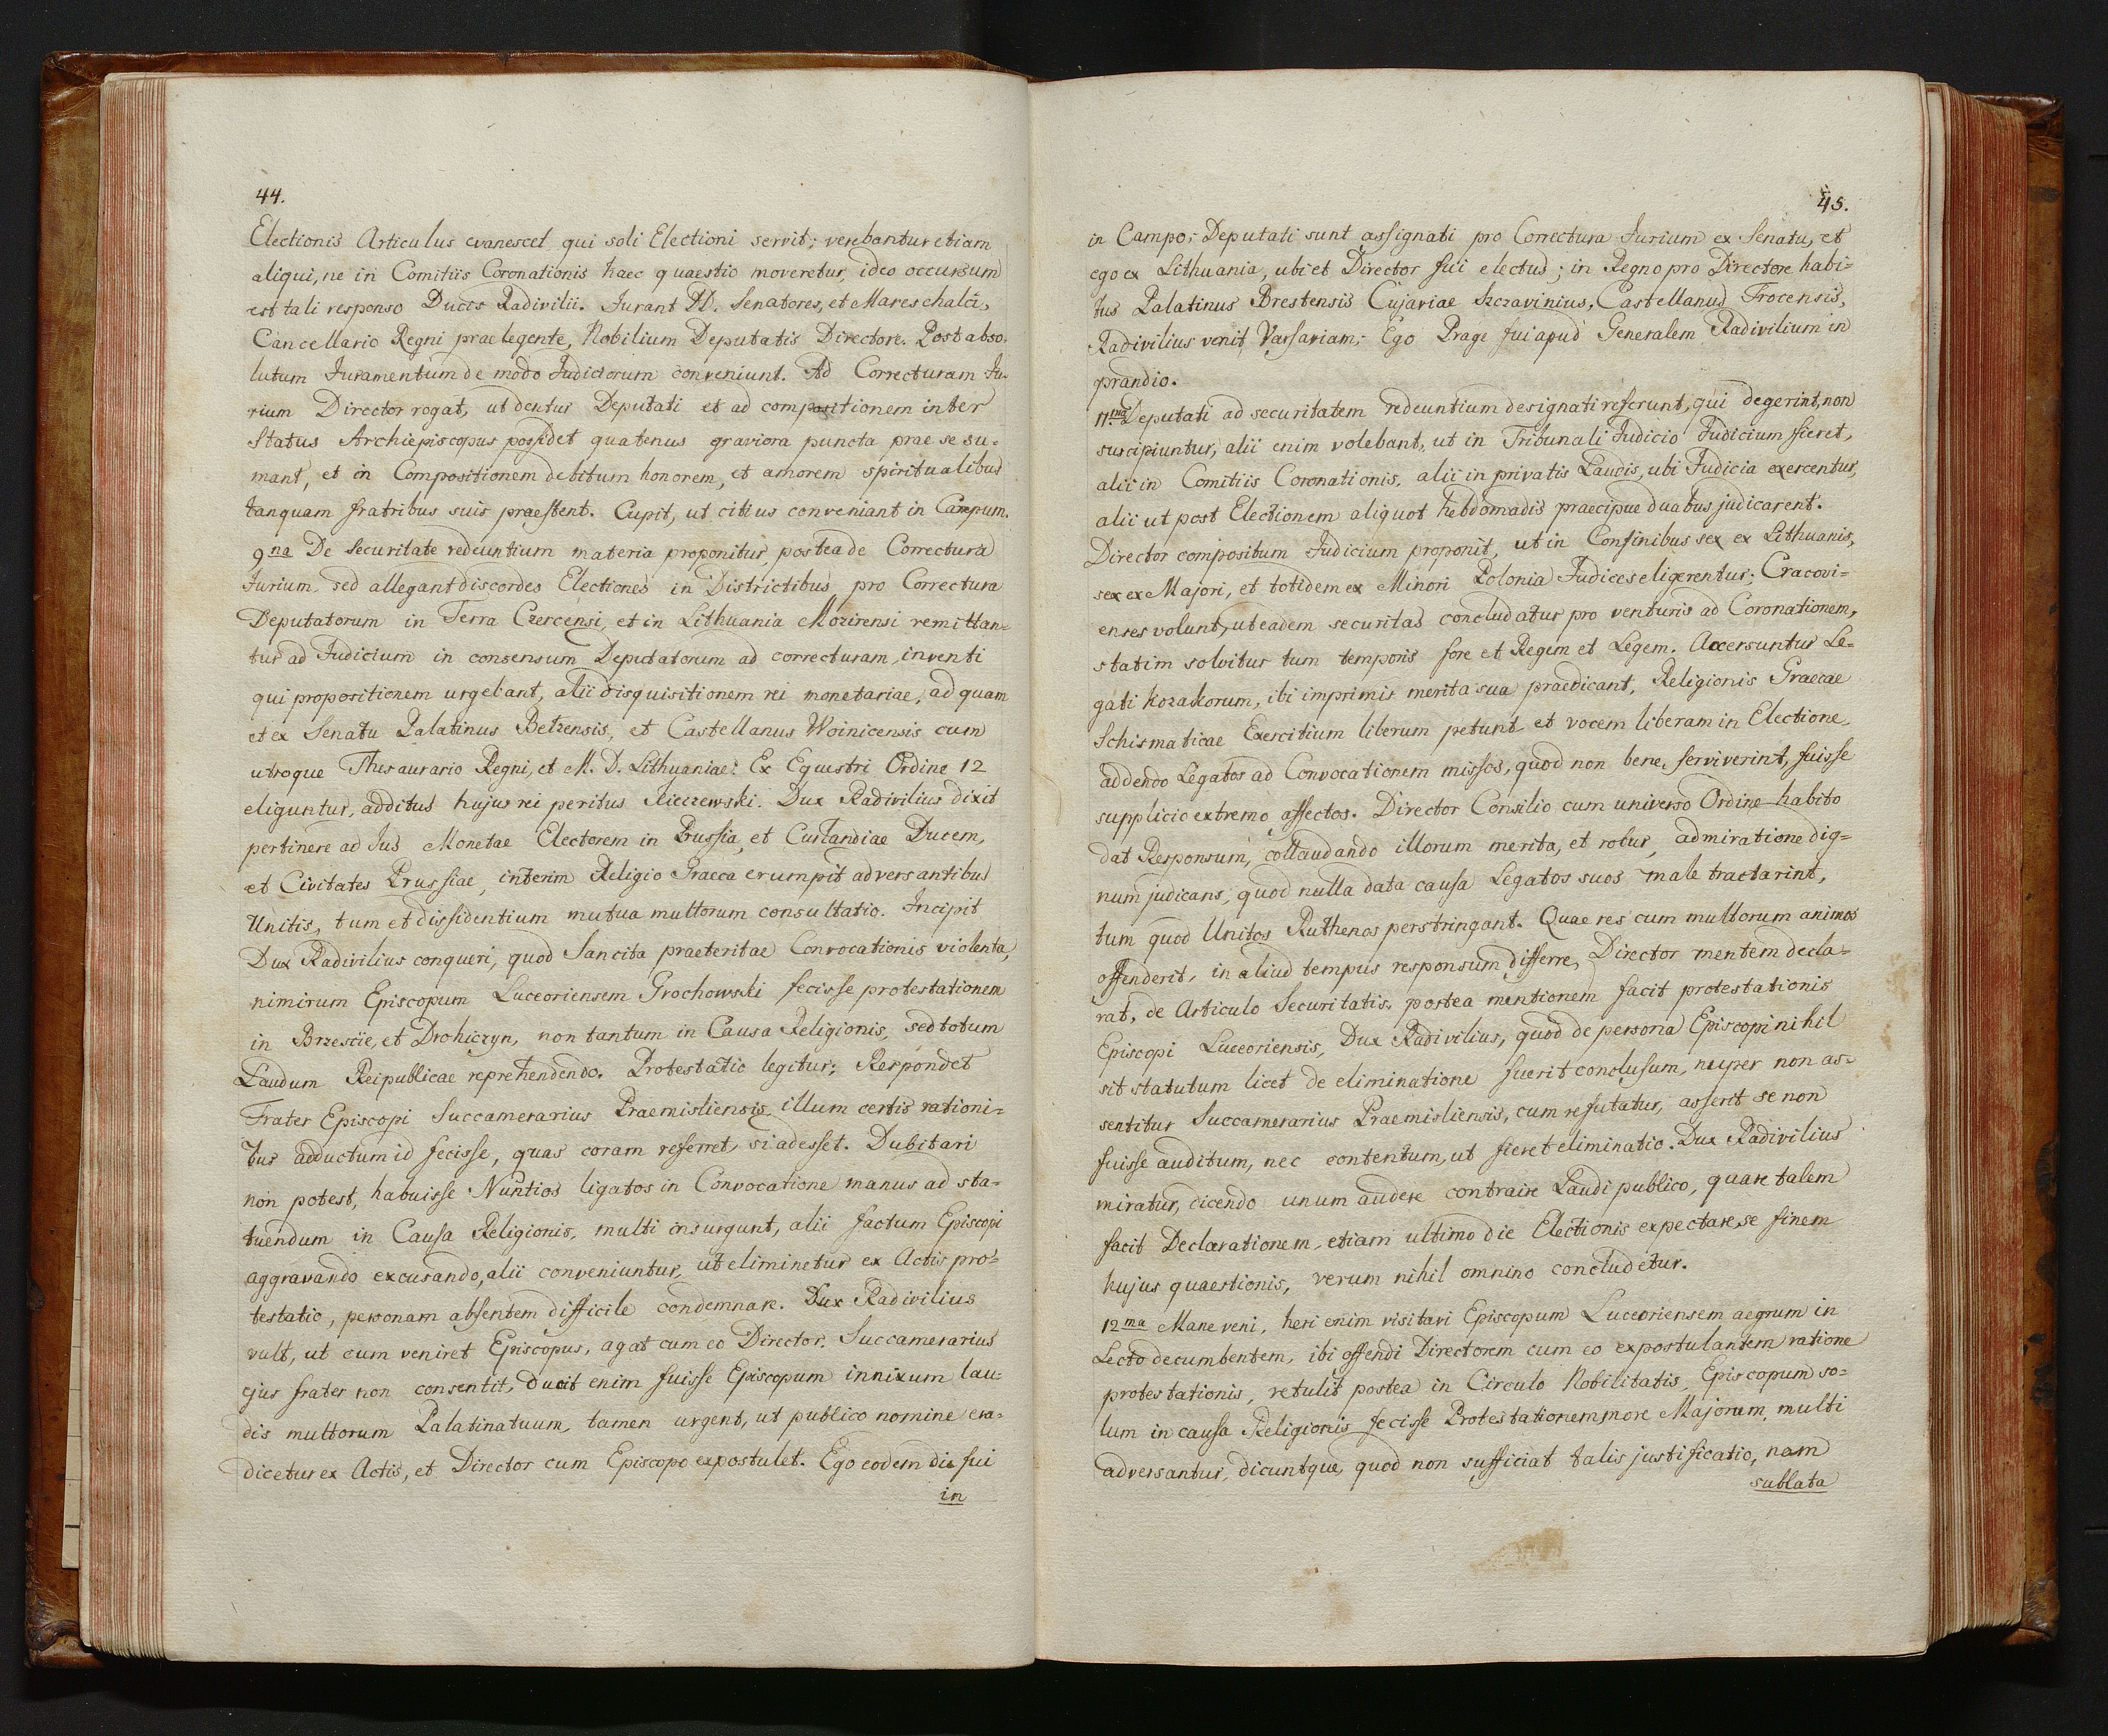 44.
Electionis Articulus evanescet qui soli Electioni servit; verebantur etiam
aliqui, ne in Comitiis Coronationis haec quaestio moveretur, ideo occursum
est tali responso Ducis Radivilii. Jurant DD. Senatores, et Mareschalci,
Cancellario Regni praelegente, Nobilium Deputatis Directore. Post abso-
lutum Juramentum de modo Judiciorum conveniunt. Ad Correcturam Ju-
rium Director rogat, ut dentur Deputati et ad compositionem inter
Status Archiepiscopus possidet quatenus graviora puncta prae se su-
mant, et in Compositionem debitum honorem, et amorem spiritualibus
tanquam fratribus suis praestent. Cupit, ut citius conveniant in Campum.
9na De Securitate redeuntium materia proponitur, postea de Correctura
Jurium, sed allegant discordes Electiones in Districtibus pro Correctura
Deputatorum in Terra Czercensi, et in Lithuania Mozirensi remittan-
tur ad Judicium in consensum Deputatorum ad correcturam, inventi
qui propositionem urgebant, alii disquisitionem rei monetariae, ad quam
et ex Senatu Palatinus Belzensis, et Castellanus Woinicensis cum
utroque Thesaurario Regni, et M. D. Lithuaniae: Ex Equestri Ordine 12
eliguntur, additus hujus rei peritus Kieczewski. Dux Radivilius dixit
pertinere ad Jus Monetae Electorem in Prussia, et Curlandiae Ducem,
et Civitates Prussiae, interim Religio Graeca erumpit adversantibus
Unitis, tum et dissidentium mutua multorum consultatio. Incipit
Dux Radivilius conqueri, quod Sancita praeteritae Convocationis violenta,
nimirum Episcopum Luceoriensem Grochowski fecisse protestationem
in Brzescie, et Drohiczyn, non tantum in Causa Religionis, sed totum
Laudum Reipublicae reprehendendo. Protestatio legitur; Respondet
Frater Episcopi Succamerarius Praemisliensis illum certis rationi-
bus adductum id fecisse, quas coram referret, si adesset. Dubitari
non potest, habuisse Nuntios ligatos in Convocatione manus ad sta-
tuendum in Causa Religionis, multi insurgunt, alii factum Episcopi
aggravando excusando, alii conveniuntur, ut eliminetur ex Actis pro-
testatio, personam absentem difficile condemnare. Dux Radivilius
vult, ut cum veniret Episcopus, agat cum eo Director. Succamerarius
ejus frater non consentit, ducit enim fuisse Episcopum innixum lau-
dis multorum Palatinatuum, tamen urgent, ut publico nomine era-
dicetur ex Actis, et Director cum Episcopo expostulet. Ego eodem die fui
in
45.
in Campo; Deputati sunt assignati pro Correctura Jurium ex Senatu, et
ego ex Lithuania, ubi et Director fui electus; in Regno pro Directore habi-
tus Palatinus Brestensis Cujaviae Szczavinius. Castellanus Trocensis,
Radivilius venit Varsaviam; Ego Prage fui apud Generalem Radivilium in
prandio.
11ma Deputati ad securitatem redeuntium designati referunt, qui degerint, non
suscipiuntur, alii enim volebant, ut in Tribunali Judicio Judicium fieret,
alii in Comitiis Coronationis, alii in privatis Laudis, ubi Judicia exercentur,
alii ut post Electionem aliquot hebdomadis praecipue duabus judicarent.
Director compositum Judicium proponit, ut in Confinibus sex ex Lithuanis,
sex ex Majori, et totidem ex Minori Polonia Judices eligerentur; Cracovi-
enses volunt, ut eadem securitas concludatur pro venturis ad Coronationem,
statim solvitur tum temporis fore et Regem et Legem. Accersuntur Le-
gati Kozakorum, ibi imprimis merita sua praedicant, Religionis Graecae
Schismaticae Exercitium liberum petunt et vocem liberam in Electione,
addendo Legatos ad Convocationem missos, quod non bene serviverint, fuisse
supplicio extremo affectos. Director Consilio cum universo Ordine habito
dat Responsum, collaudando illorum merita, et robur, admiratione dig-
num judicans, quod nulla data causa Legatos suos male tractarint,
tum quod Unitos Ruthenos perstringant. Quae res cum multorum animos
offenderit, in aliud tempus responsum differre, Director mentem decla-
rat, de Articulo Securitatis, postea mentionem facit protestationis
Episcopi Luceoriensis, Dux Radivilius, quod de persona Episcopi nihil
sit statutum licet de eliminatione fuerit conclusum, nuper non as-
sentitur Succamerarius Praemisliensis, cum refutatur, asserit se non
fuisse auditum, nec contentum, ut fieret eliminatio. Dux Radivilius
miratur, dicendo unum audere contraire Laudi publico, quare talem
facit Declarationem, etiam ultimo die Electionis expectare se finem
hujus quaestionis, verum nihil omnino concludetur.
12ma Mane veni, heri enim visitavi Episcopum Luceoriensem aegrum in
Lecto decumbentem, ibi offendi Directorem cum eo expostulantem ratione
protestationis, retulit postea in Circulo Nobilitatis, Episcopum so-
lum in causa Religionis fecisse Protestationem more Majorum, multi
adversantur, dicuntque, quod non sufficiat talis justificatio, nam
sublata